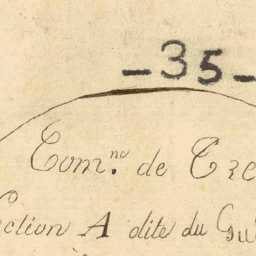 - 35 -
Com.ne de Tre
ection A dite du Gu